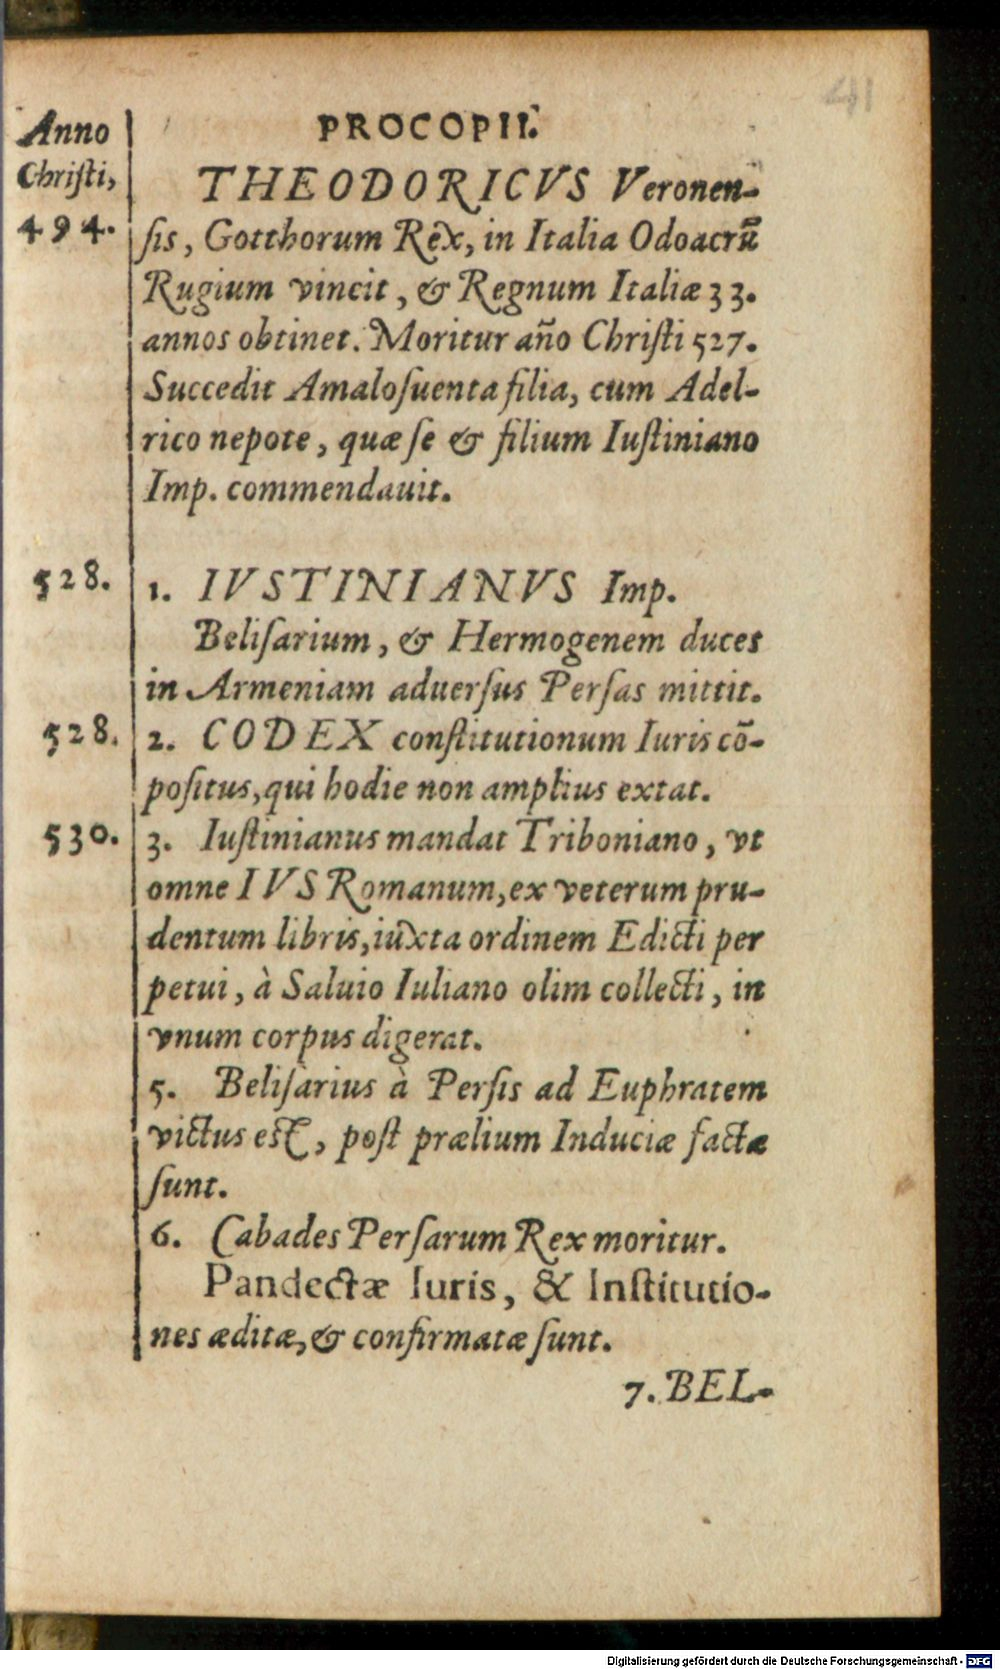 41
PROCOPII.
Anno
Christi,
494.
THEODORICVS Veronen-
ſis, Gotthorum Rex, in Italia Odoacrũ
Rugium vincit, & Regnum Italiæ 33.
annos obtinet. Moritur año Chriſti 527.
Succedit Amaloſuenta filia, cum Adel-
rico nepote, quæ ſe & filium Iuſtiniano
Imp. commendauit.
528. 1. IVSTINIANVS Imp.
Beliſarium, & Hermogenem duces
in Armeniam aduerſus Perſas mittit.
528. 2. CODEX conſtitutionum Iuris cō-
poſitus, qui hodie non amplius extat.
530. 3. Iuſtinianus mandat Triboniano, vt
omne IVS Romanum, ex veterum pru-
dentum libris, iuxta ordinem Edicti per
petui, à Saluio Iuliano olim collecti, in
vnum corpus digerat.
5. Beliſarius à Perſis ad Euphratem
victus eſt, poſt prælium Induciæ factæ
ſunt.
6. Cabades Perſarum Rex moritur.
Pandectæ Iuris, & Inſtitutio-
nes æditæ, & confirmatæ ſunt.
7. BEL-
Digitalisierung gefördert durch die Deutsche Forschungsgemeinschaft - DFG